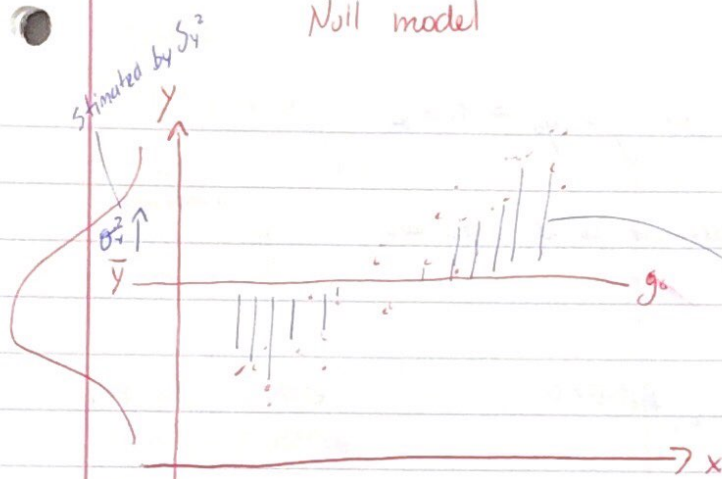 Null model
Stimated by S_y²
Y
σ_y²
ȳ
g₀
x